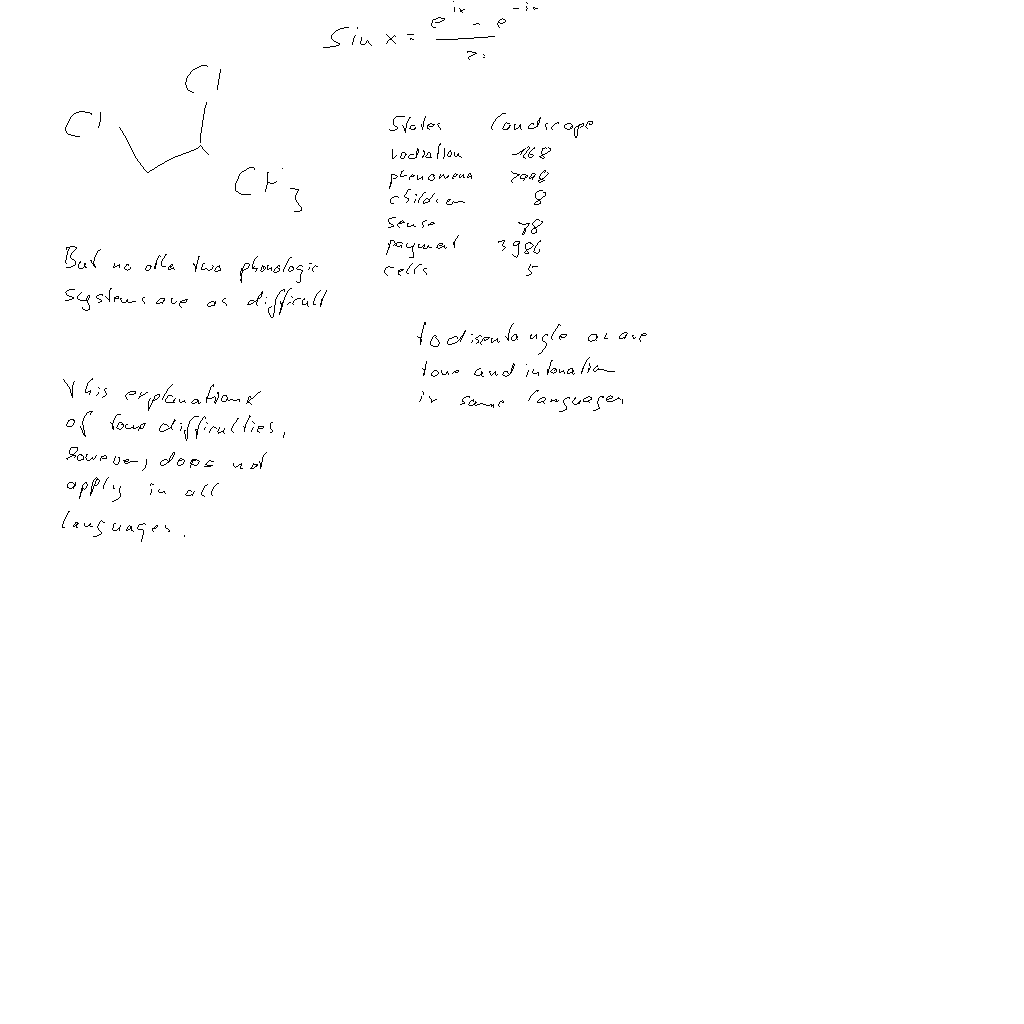 sin x = e^ix - e^-ix / 2i
Cl
Cl
CH3
States landscape
radiation 1268
phenomena 7998
children 8
sense 78
payment 3986
cells 5
But no other two phonologic
systems are as difficult
to disentangle as are
tone and intonation
in some languages
This explanation
of tone difficulties,
however, does not
apply in all
languages.